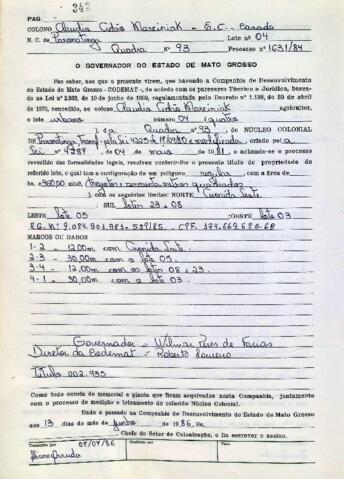 343
PAG.
COLONO Claudia Cidrão Marciniak - S.C. - Casada
N. C. de Paranatinga Lote nº 04
Quadra nº 93 Processo nº 1631/84
O GOVERNADOR DO ESTADO DE MATO GROSSO
Faz saber, aos que o presente virem, que havendo a Companhia de Desenvolvimento
do Estado de Mato Grosso - CODEMAT -, de acôrdo com os pareceres Técnico e Jurídico, basea-
do na Lei nº de 10 de junho de regulamentada pelo Decreto nº 1.138, de 20 de abril
de 1970, concedido, ao colono Claudia Cidrão Marciniak agricultor,
o lote urbano número 04 quatro
da Quadra nº 93, do NÚCLEO COLONIAL
de Paranatinga, criado pela
Lei nº 4287 de 04 de maio de 1981, e achando-se o processo
revestido das formalidades legais, resolves conferir-lhe o presente título de propriedade do
referido lote, o qual tem a configuração de um polígono regular com a área de
360,00 (trezentos e sessenta metros quadrados
) com os seguintes limites: NORTE Avenida Leste
SUL lotes 23 e 08
LESTE lote 05 OESTE lote 03
R.G. nº 9.084.901.981-SSP/85. CPF. 174.669.620-68
MARCOS OU DADOS
1-2 - 12,00m com Avenida Leste
2-3 - 30,00m com o lote 05.
3-4 - 12,00m com os lotes 08 e 23.
4-1 - 30,00m com o lote 03.
Governador - Wilmar Peres de Farias
Diretor da Codemat - Roberto Loureiro
Título 002.935
Como tudo consta de memorial e planta que ficam arquivados nesta Companhia, juntamente
com o processo de medição e loteamento do referido Núcleo Colonial.
Dado e passado na Companhia de Desenvolvimento do Estado de Mato Grosso
aos 13 dias do mês de junho de 1986. Eu,
Chefe do Setor de Colonização, o fiz escrever e assino.
Transcrito por 07/07/86 CONFERIDO POR VISTO